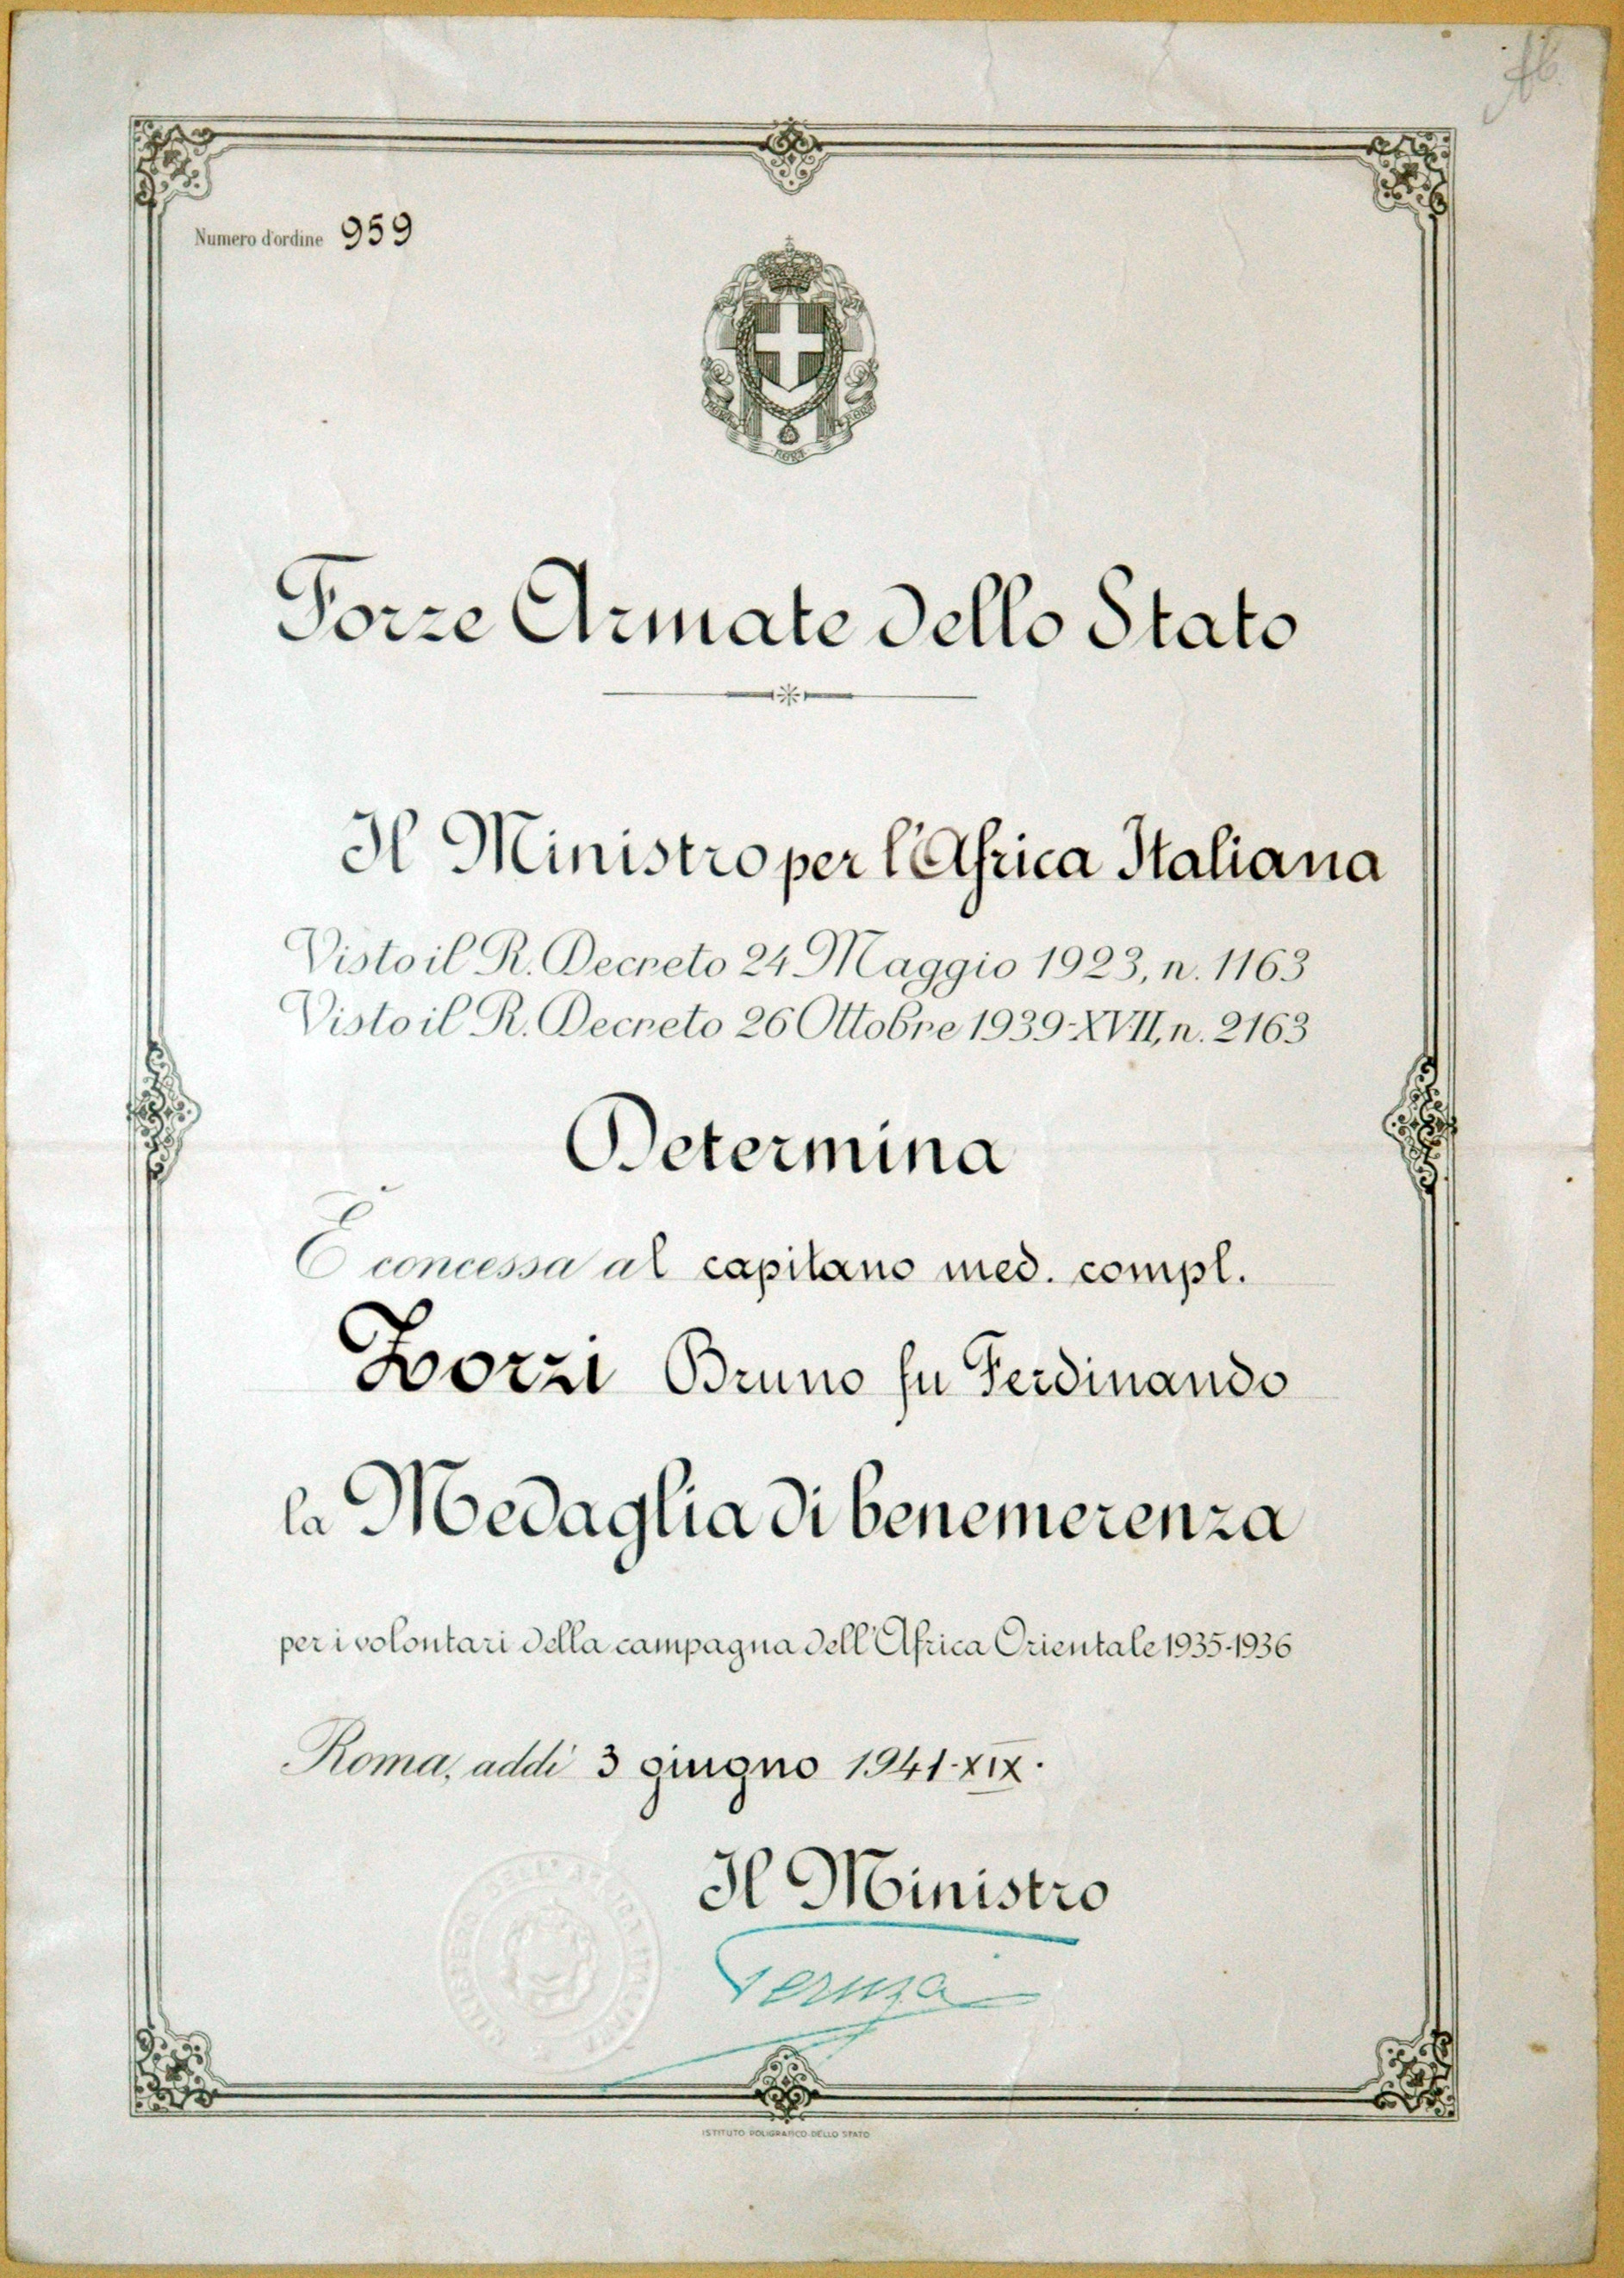 Ab.
Numero d'ordine 959
FERT FERT
FERT
Forze Armate dello Stato
Il Ministro per l'Africa Italiana
Visto il R. Decreto 24 Maggio 1923, n. 1163
Visto il R. Decreto 26 Ottobre 1939-XVII, n. 2163
Determina
È concessa al capitano med. compl.
Zorzi Bruno fu Ferdinando
la Medaglia di benemerenza
per i volontari della campagna dell'Africa Orientale 1935-1936
Roma, addì 3 giugno 1941-XIX.
Il Ministro
MINISTERO DELL'AFRICA ITALIANA
Teruzzi
ISTITUTO POLIGRAFICO DELLO STATO